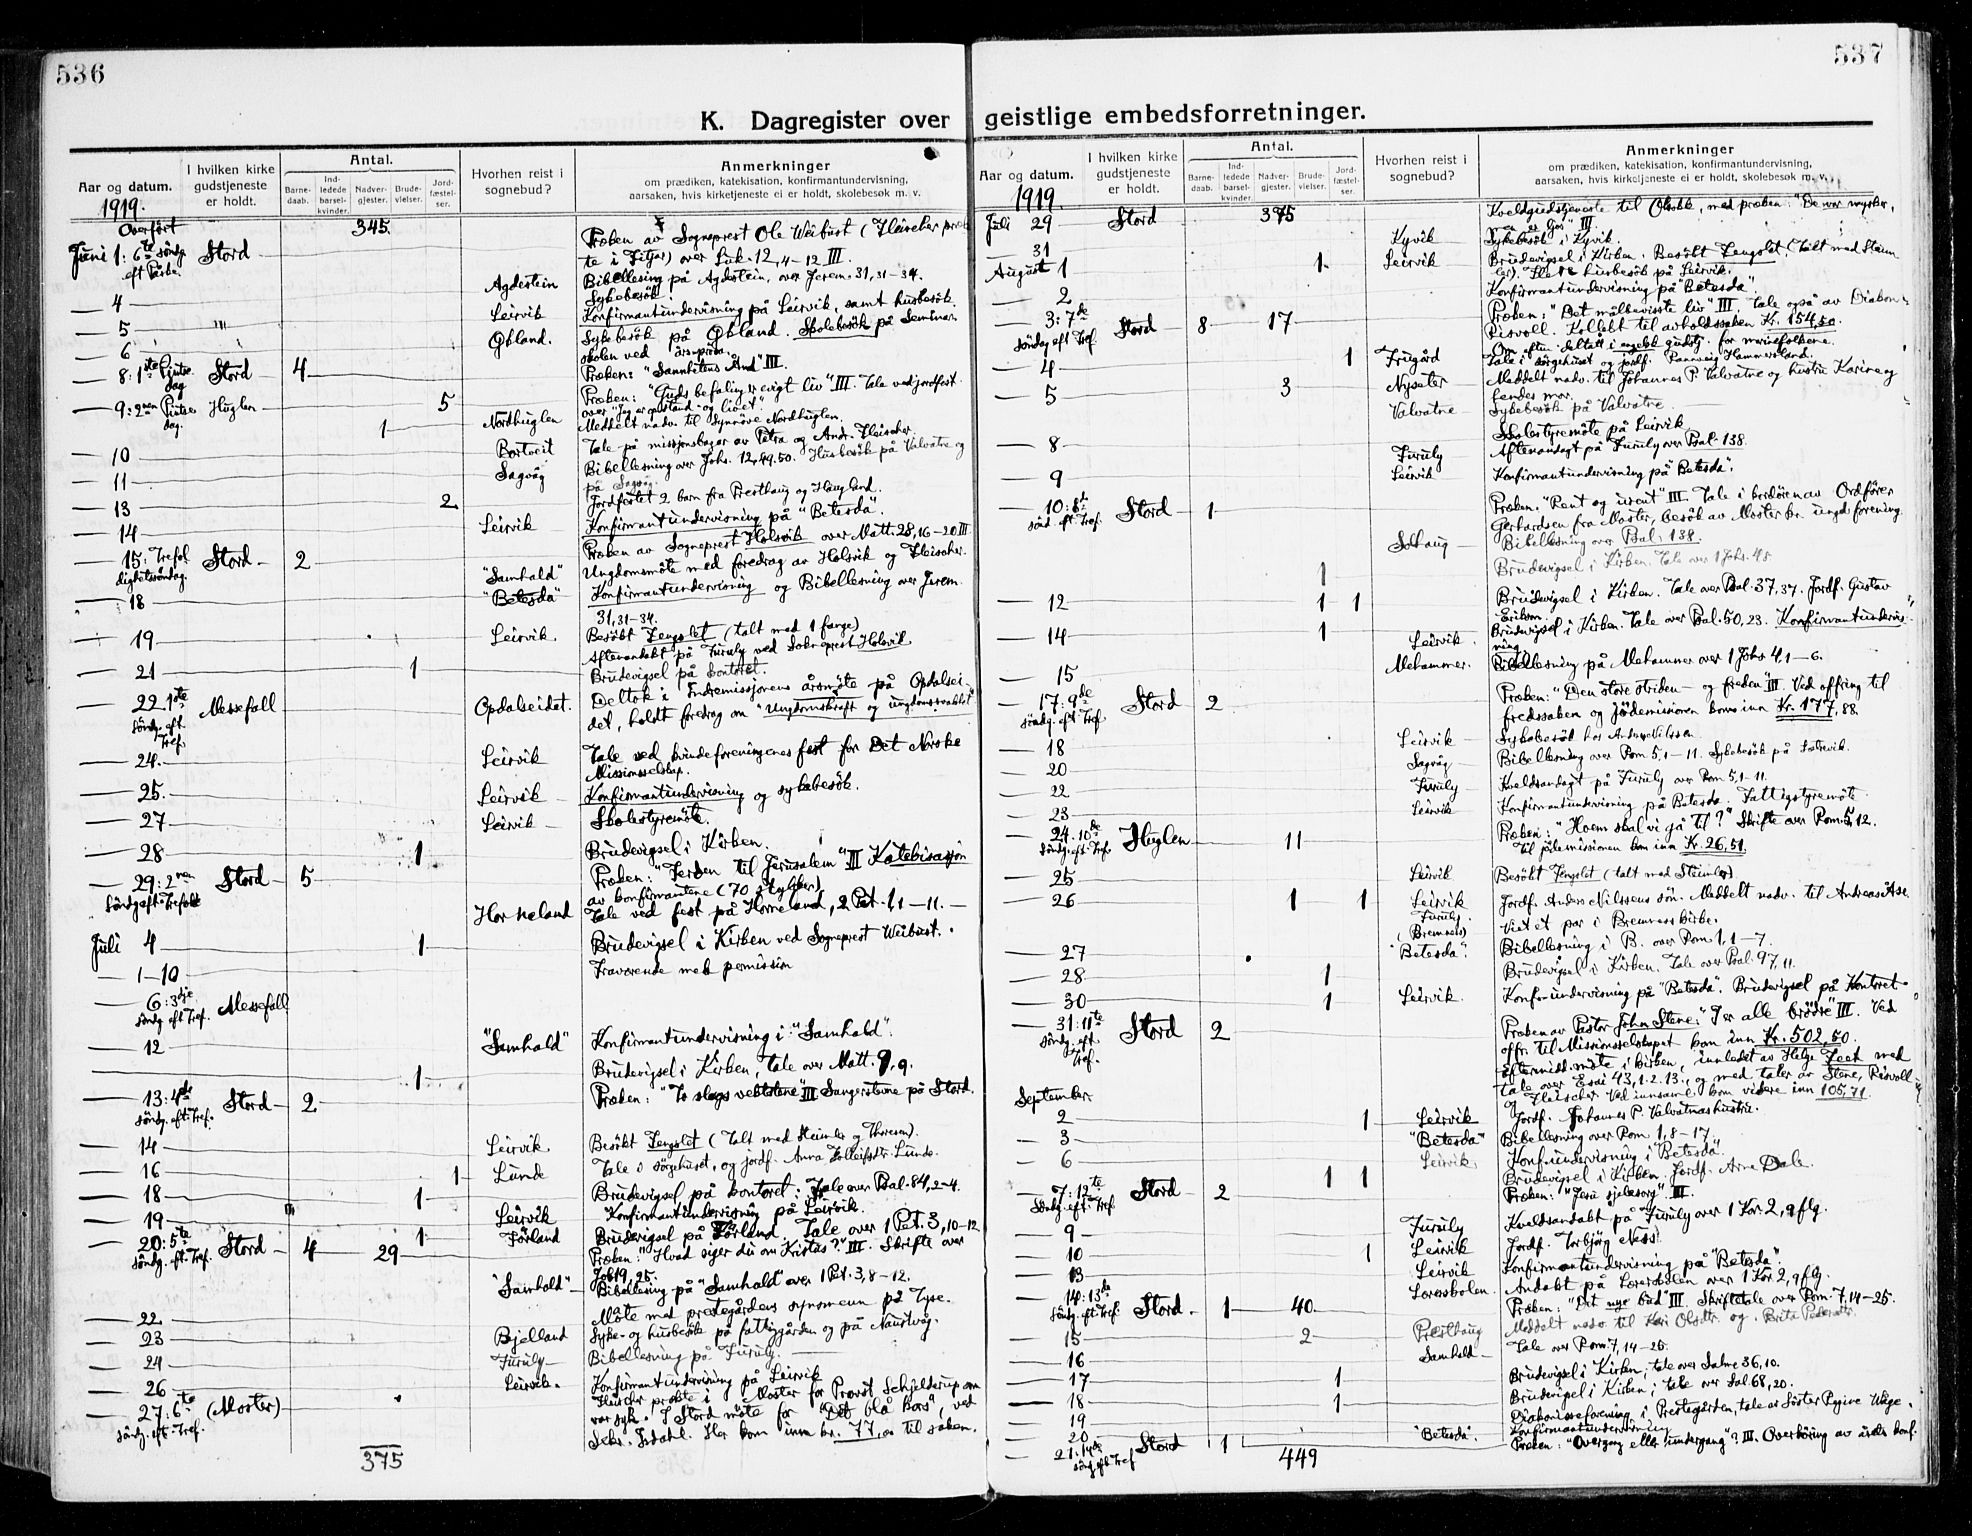 536
K. Dagregister over
Aar og datum.
I hvilken kirke gudstjeneste er holdt.
Antal.
Barne-daab.
Ind-ledede barsel-kvinder.
Nadver-gjester.
Brude-vielser.
Jord-fæstel-ser.
Hvorhen reist i sognebud?
Anmerkninger
om prædiken, katekisation, konfirmantundervisning,
aarsaken, hvis kirketjeneste ei er holdt, skolebesøk m. v.
1919.
Overført 345
Juni 1: 6te søndg. eft Påske. Stord Præken av Sogneprest Ole Weibust (Fleischer
te i Fitjar) over Luk. 12, 4-12 III.
Agdestein Bibellesing på Agdestein, over Jerem. 31, 31-34.
4 Sykebesøk.
5 Leirvik Konfirmantundervisning på Leirvik, samt husbesøk.
6 Sykebesøk på . Skolebesøk på Seminar
skolen ved årsprøva.
8: 1ste Pintse dag Stord 4 Præken: "Sannhetens Ånd" III.
9: 2nen Pintse dag. Huglen 5 Præken: "Guds befaling er evigt liv" III. Tale ved jordfest.
over "Jeg er opstand. og livet"
1 Nordhuglen Meddelt nadv. til Synnøve Nordhuglen
10 Bortveit Tale på missjonsbasar av Petra og Andr. Fleischer.
11 Sagvåg Bibellesning over Johs. 12, 49.50. Husbesøk på Valvatne og
på Sagvåg.
13 2 Jordfestet 2 barn fra Presthaug og Haugland.
14 Leirvik Konfirmantundervisning på "Betesda".
15: Trefoldighetssøndag. Stord 2 Præken av Sogneprest Holsvik over Matt. 28, 16-20 III
"Samhald" Ungdomsmøte med foredrag av Holsvik og Fleischer.
18 "Betesda" Konfirmantundervisning og Bibellesning over Jerem.
31, 31-34.
19 Leirvik. Besøkt Fengslet (talt med 1 fange)
Aftenandakt på Furuly ved Sokneprest Holsvik
21 1 Brudevigsel på kontoret.
22. 1ste søndg. eft. Tref. Messefall Opdalseidet. Deltok i Indremissjonens årsmøte på Opdalsei-
det, holdt foredrag om "Ungdomskraft og ungdomssvakhet"
24. Leirvik Tale ved kvindeforeningenes fest for Det Norske
Missionsselskap.
25. Leirvik Konfirmantundervisning og sykebesøk.
27 Leirvik Skolestyremøte.
28 1 Brudevigsel i Kirken.
29: 2nen Søndg eft Trefold Stord 5 Præken: "Ferden til Jerusalem" III Katekisasjon
av konfirmantene (70 stykker)
Horneland Tale ved fest på Horneland, 2 Pet. 1, 1-11.
Juli 4 1 Brudevigsel i Kirken ved Sogneprest Weibust.
1-10 Fraværende med permission
6: 3dje Søndg. eft Tref. Messefall
12 "Samhald" Konfirmantundervisning i "Samhald".
1 Brudevigsel i Kirken, tale over Matt. 9, 9.
13: 4de Søndg. eft. Tref. Stord 2 Præken: "To slags vektstene" III Sangerstevne på Stord.
14 Leirvik Besøkt Fengslet (talt med Steinler og Thoresen).
16 1 Lunde Tale i sørgehuset, og jordf. Anna Lunde.
18 1 Brudevigsel på kontoret: Tale over Psal. 84, 2-4.
19 Leirvik Konfirmantundervisning på Leirvik.
1 Førland Brudevigsel på Førland. Tale over 1 Pet. 3, 10-12
20: 5te Søndg. eft. Tref. Stord 4 29 Præken: "Hvad siger du om Kristus?" III. Skrifte over
Job 19, 25.
"Samhold" Bibellesing på "Samhold" over 1 Pet. 3, 8-12.
22 Møte med prestegårdens opnemnn på Tyse.
23 Bjelland Syke- og husbesøk på fattiggården og på Naustvåg.
24 Furuly Bibellesning på Furuly.
26 Leirvik. Konfirmantundervisning på Leirvik
27: 6te Søndg. eft. Tref. (Moster) Fleischer præket i Moster for Provst Schjelderup som
var syk. I Stord møte for "Det blå Kors", ved
Sekr. Isdahl. Her kom inn kr. 77, til saken.
375
537
geistlige embedsforretninger.
Aar og datum.
I hvilken kirke gudstjeneste er holdt.
Antal.
Barne-daab.
Ind-ledede barsel-kvinder.
Nadver-gjester.
Brude-vielser.
Jord-fæstel-ser.
Hvorhen reist i sognebud?
Anmerkninger
om prædiken, katekisation, konfirmantundervisning,
aarsaken, hvis kirketjeneste ei er holdt, skolebesøk m. v.
1919
Juli 29 Stord 375 Kveldgudstjeneste til Olsokk, med præken: "De var mørker,
III
31 Kyvik Sykebesøk i Kyvik.
August 1 1 Leirvik Brudevigsel i Kirken. Besøkt Fengslet (talt med Steinler). husbesøk på Leirvik.
2 Konfirmantundervisning på "Betesda".
3: 7de Søndag eft Tref Stord 8 17 Præken: "Det målbevisste liv" III. Tale også av Diakon
Risvoll. Kollekt til avholdssaken Kr. 154,50.
Om eftm. deltatt i engelsk gudstj. for marinefolkene.
4 1 Frugård Tale i sørgehuset og jordf. Rannveig Hammersland.
5 3 Nysæter Meddelt nadv. til Johannes P. Valvatne og hustru Karine og
hendes mor.
Valvatne Sykebesøk på Valvatne
Skolestyremøte på Leirvik
8 Furuly Aftenandagt på Furuly over Psal. 138.
9 Leirvik Konfirmantundervisning på "Betesda".
10: 8de Sønd. eft. Tref. Stord 1 Præken: "Rent og urent" III. Tale i kordøren av Ordfører
Gerhardsen fra Moster, besøk av Moster kr. ungd.forening.
Solhaug Bibellesning over Psal. 138.
1 Brudevigsel i Kirken. Tale over 1 Johs. 4
12 1 1 Brudevigsel i Kirken. Tale over Psal. 37, 37. Jordf. Gustav
Eriksen.
14 1 Leirvik Brudevigsel i Kirken. Tale over Psal. 50, 23. Konfirmantundervisning
15 Mehammer. Bibellesning på Mehammer over 1 Johs 4, 1-6.
17: 9de Søndg. eft. Tref. Stord 2 Præken: "Den store striden - og freden" III. Ved offring til
fredssaken og jødemisionen kom inn Kr. 177,88.
18 Leirvik Sykebesøk hos Anders Nilssen
20 Sagvåg Bibellesning over Rom 5, 1-11. Sykebesøk på Sætrevik.
22 Furuly Kveldsandagt på Furuly over Rom 5, 1-11.
23 Leirvik Konfirmantundervisning på Betesda. Fattigstyremøte
24: 10de Søndg. eft. Tref. Huglen 11 Præken: "Hvem skal vi gå til?" Skrifte over Rom. 5, 12.
Til jødemissionen kom inn Kr. 26,51.
25 Leirvik Besøkt Fengslet (talt med Steimler)
26 1 1 Leirvik Jordf. Anders Nilssens søn. Meddelt nadv. til Andreas Åse.
Furuly.
(Bremnes) Viet et par i Bremnes kirke.
27 "Betesda". Bibellesning i B. over Rom 1, 1-7.
28 1 Brudevigsel i Kirken. Tale over Psal. 97, 11.
30 1 Leirvik. Konfirundervisning på "Betesda". Brudevigsel på Kontoret.
31: 11te Søndg. eft. Tref. Stord 2 Præken av Pastor John Stene: "I er alle brødre" III. Ved
offr. til Missionsselskapet kom inn Kr. 502,50.
Eftermidd.møte i kirken, innledet av Helge med
tale over Esai 43, 1.2.13., og med taler av Stene, Risvoll
og Fleischer. Ved innsaml. kom videre inn 105,71.
September
2 1 Leirvik Jordf. Johannes P. Valvatnes hustru.
3 "Betesda" Bibellesning over Rom 1, 8-17.
6 Leirvik. Konfundervisning i "Betesda".
1 1 Brudevigsel i Kirken. Jordf. Arne Dale.
7: 12te Søndg. eft. Tref. Stord 2 Præken: "Jesu sjelesorg". III.
9 Furuly Kveldsandakt på Furuly over 1 Kor. 2, 9 flg.
10 1 Leirvik Jordf. Torbjørg Ness.
13 Leirvik Konfirmantundervisning på "Betesda".
Lærerskolen. Andakt på Lærerskolen over 1 Kor 2, 9 flg.
14: 13de Søndg. eft. Tref. Stord 1 40 Præken: "Det nye bud" III. Skriftetale over Rom. 7, 14-25.
15 2 Presthaug Meddelt nadv. til Kari Olsdtr. og Brita Pedersdtr.
Samhald Tale over Rom. 7, 14-25.
16
17 1 Brudevigsel i Kirken, tale over Salme 36, 10.
18 1 Brudevigsel i Kirken, tale over Sal 68, 20.
19 Diakonisseforening i Prestegården, tale av Søster Wåge.
20 "Betesda". Konfirmantundervisning
21: 14de Søndg eft Tref Stord 1 Præken: "Overgang eller undergang"? III. Overhøring av årets konf.
449